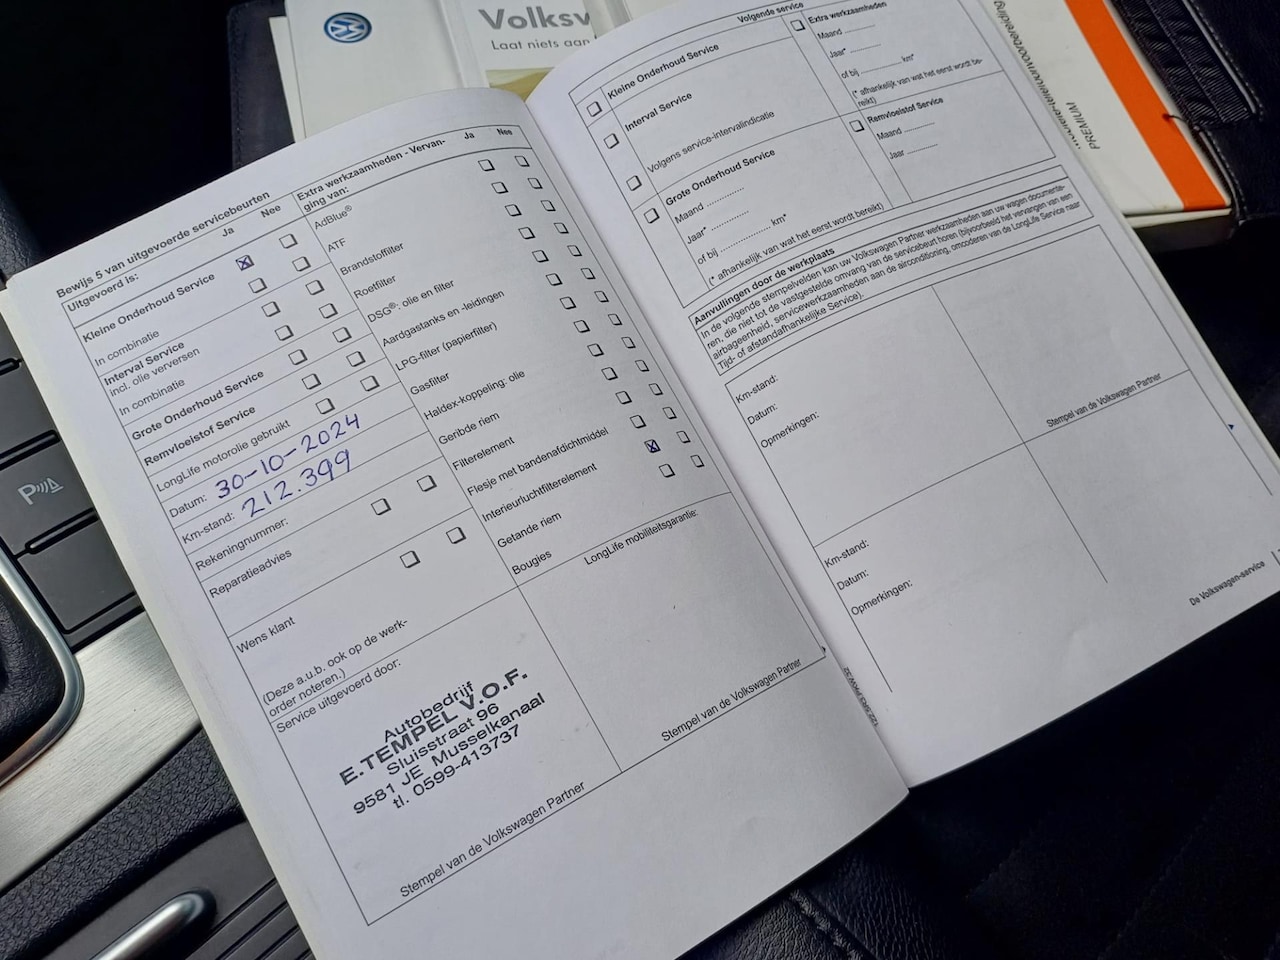 Volksw
Laat niets aan
PREMIUM
Bewijs 5 van uitgevoerde servicebeurten
Uitgevoerd is:
Ja
Nee
Kleine Onderhoud Service
In combinatie
Interval Service
incl. olie verversen
In combinatie
Grote Onderhoud Service
Remvloeistof Service
LongLife motorolie gebruikt
Datum: 30-10-2024
Km-stand: 212.399
Rekeningnummer:
Reparatieadvies
Wens klant
(Deze a.u.b. ook op de werk-
order noteren.)
Service uitgevoerd door:
Autobedrijf
E.TEMPEL V.O.F.
Sluisstraat 96
9581 JE Musselkanaal
tl. 0599-413737
Stempel van de Volkswagen Partner
Extra werkzaamheden - Vervan-
ging van:
Ja
Nee
AdBlue®
ATF
Brandstoffilter
Roetfilter
DSG®: olie en filter
Aardgastanks en -leidingen
LPG-filter (papierfilter)
Gasfilter
Haldex-koppeling: olie
Geribde riem
Filterelement
Flesje met bandenafdichtmiddel
Interieurluchtfilterelement
Getande riem
Bougies
LongLife mobiliteitsgarantie:
Stempel van de Volkswagen Partner
Volgende service
Kleine Onderhoud Service
Interval Service
Volgens service-intervalindicatie
Grote Onderhoud Service
Maand ..............
Jaar* ..............
of bij .................. km*
(* afhankelijk van wat het eerst wordt bereikt)
Extra werkzaamheden
Maand ...........
Jaar* ...........
of bij .............. km*
(* afhankelijk van wat het eerst wordt be-
reikt)
Remvloeistof Service
Maand ...........
Jaar ...........
Aanvullingen door de werkplaats
In de volgende stempelvelden kan uw Volkswagen Partner werkzaamheden aan uw wagen documente-
ren, die niet tot de vastgestelde omvang van de servicebeurt horen (bijvoorbeeld het vervangen van een
airbageenheid, servicewerkzaamheden aan de airconditioning, omcoderen van de LongLife Service naar
Tijd- of afstandafhankelijke Service).
Km-stand:
Datum:
Opmerkingen:
Stempel van de Volkswagen Partner
Km-stand:
Datum:
Opmerkingen:
De Volkswagen-service